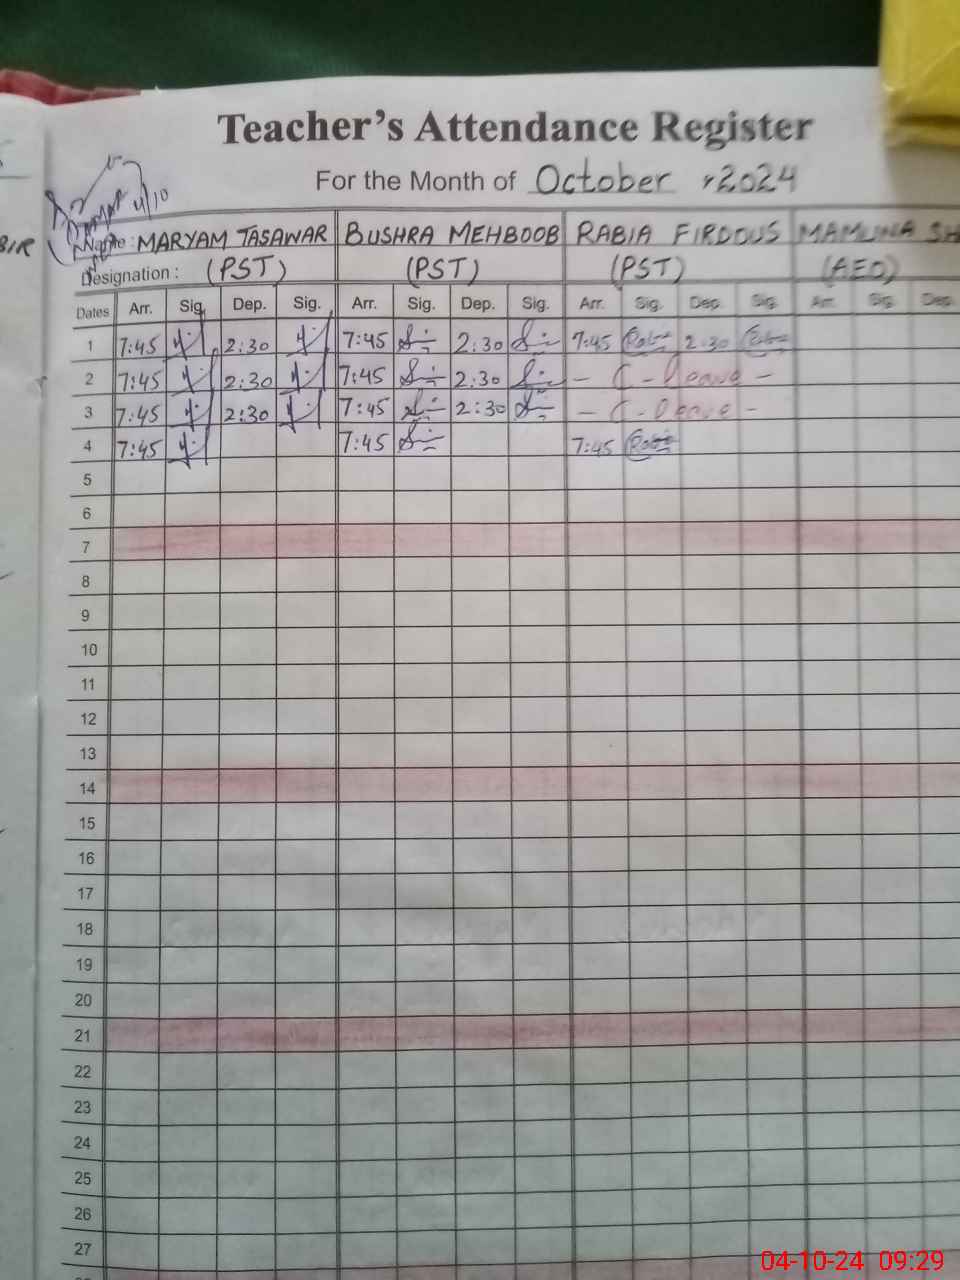 Teacher's Attendance Register
For the Month of October 2024
4/10
BIR
Name : MARYAM TASAWAR BUSHRA MEHBOOB RABIA FIRDOUS MAMUNA SH
Designation : (PST) (PST) (PST) (AEO)
Dates Arr. Sig. Dep. Sig. Arr. Sig. Dep. Sig. Arr. Sig. Dep. Sig. Arr. Sig. Dep.
1 7:45 2:30 7:45 2:30 7:45 2:30
2 7:45 2:30 7:45 2:30 - C - Leave -
3 7:45 2:30 7:45 2:30 - C - Leave -
4 7:45 7:45 7:45
5
6
7
8
9
10
11
12
13
14
15
16
17
18
19
20
21
22
23
24
25
26
27
04-10-24 09:29